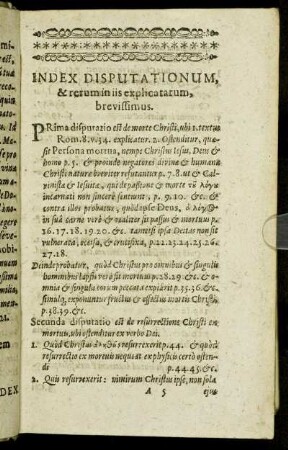 INDEX DISPUTATIONUM,
& rerum in iis explicatarum,
brevissimus.
PRima disputatio est de morte Christi, ubi 1. textus
Rom. 8. v. 34. explicatur. 2. Ostenditur, quæ-
se Persona mortua, nempe Christus Iesus, Deus &
homo p. 5. & proinde negatores divinæ & humanæ
Christi naturæ breviter refutantur p. 7. 8. ut & Cal-
vinistæ & Iesuitæ, qui de passione & morte τῦ λόγυ
incarnati non sincerè sentiunt, p. 9. 10. &c. &
contra illos probatur, quòd ipse Deus, ὁ λόγ@
in suâ carne verè & realiter sit passus & mortuus p.
16. 17. 18. 19. 20. &c. tametsi ipsa Deitas non sit
vulnerata, occisa, & crucifixa, p. 22. 23. 24. 25. 26.
27. 18.
Deinde probatur, quòd Christus pro omnibus & singulis
hominibus lapsis verè sit mortuus p. 28. 29. &c. &
omnia & singula eorum peccata expiârit p. 35. 36. &c.
simulq; exponuntur fructus & effectus mortis Christi,
p. 38. 39. &c.
Secunda disputatio est de resurrectione Christi ex
mortuis, ubi ostenditur ex verbo Dei.
1. Quòd Christus resurrexerit p. 44. & quòd
resurrectio ex mortuis nequeat ex physicis certò osten-
di p. 44. 45. &c.
2. Quis resurrexerit: nimirum Christus ipse, non sola
A 5 ejus